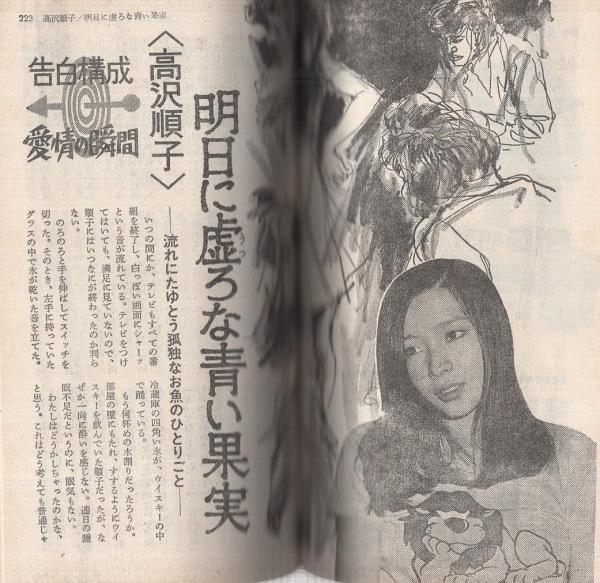 223 高沢順子/明日に虚ろな青い果実
告白構成
愛情の瞬間
〈高沢順子〉
明日に虚ろな青い果実
うつ
──流れにたゆとう孤独なお魚のひとりごと──
いつの間にか、テレビもすべての番
組を終了し、白っぽい画面にシャーッ
という音が流れている。テレビをつけ
てはいても、満足に見ていないので、
順子にはいつなにが終わったのか判ら
ない。
のろのろと手を伸ばしてスイッチを
切った。そのとき、左手に持っていた
グラスの中で氷が乾いた音を立てた。
冷蔵庫の四角い氷が、ウイスキーの中
で踊っている。
もう何杯めの水割りだったろうか。
部屋の壁にもたれ、すするようにウイ
スキーを飲んでいた順子だったが、な
ぜか一向に酔いを感じない。連日の睡
眠不足だというのに、眠気もない。
わたしはどうかしちゃったのかな、
と思う。これはどう考えても普通じゃ